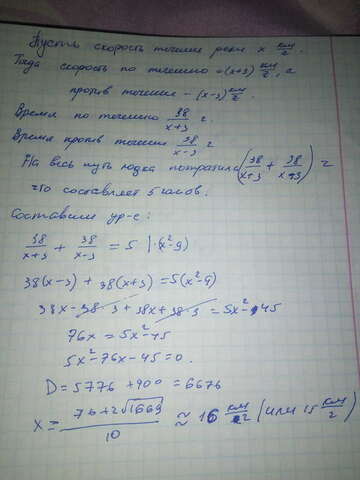 Пусть скорость течения реки x км/ч.
Тогда скорость по течению - (x+3) км/ч, а
против течения - (x-3) км/ч.
Время по течению 38/(x+3) ч.
Время против течения 38/(x-3) ч
На весь путь лодка потратила (38/(x+3) + 38/(x-3)) ч
что составляет 5 часов.
Составим ур-е:
38/(x+3) + 38/(x-3) = 5 |·(x²-9)
38(x-3) + 38(x+3) = 5(x²-9)
38x - 38·3 + 38x + 38·3 = 5x² - 45
76x = 5x² - 45
5x² - 76x - 45 = 0.
D = 5776 + 900 = 6676
x = (76 + 2√1669)/10 ≈ 16 км/ч (или 15 км/ч)